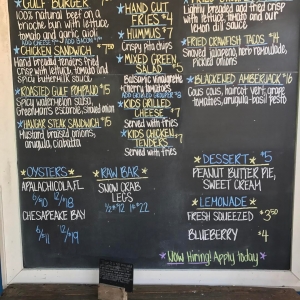 GULF BURGER $
100% natural beef on a
brioche bun with lettuce,
tomato and garlic aioli
CHICKEN SANDWICH $
Hand breaded tenders fried
crisp with lettuce, tomato and
spicy buttermilk sauce
ROASTED GULF POMPANO $15
Spicy watermelon salsa,
Greenhorns escarole, shaved onion
HANGAR STEAK SANDWICH $15
Mustard braised onions,
arugula, Ciabatta
HAND CUT
FRIES $4
HUMMUS $7
Crispy pita chips
MIXED GREEN
SALAD $5
Balsamic vinaigrette
cherry tomatoes
KIDS GRILLED
CHEESE $7
Served with fries
KIDS CHICKEN $7
TENDERS
Served with fries
Lightly breaded and fried crisp
with lettuce, tomato and our
lemon dill sauce
FRIED CRAWFISH TACOS $14
Shaved jalapeño, herb remoulade,
Pickled onions
BLACKENED AMBERJACK $16
Cous cous, haricot vert, grape
tomatoes, arugula-basil pesto
OYSTERS
APALACHICOLA, FL
6/$10 12/$18
CHESAPEAKE BAY
6/$11 12/$19
RAW BAR
SNOW CRAB
LEGS
1/2# $12 1# $22
DESSERT $5
PEANUT BUTTER PIE,
SWEET CREAM
LEMONADE
FRESH SQUEEZED $3.50
BLUEBERRY $4
Now Hiring! Apply today